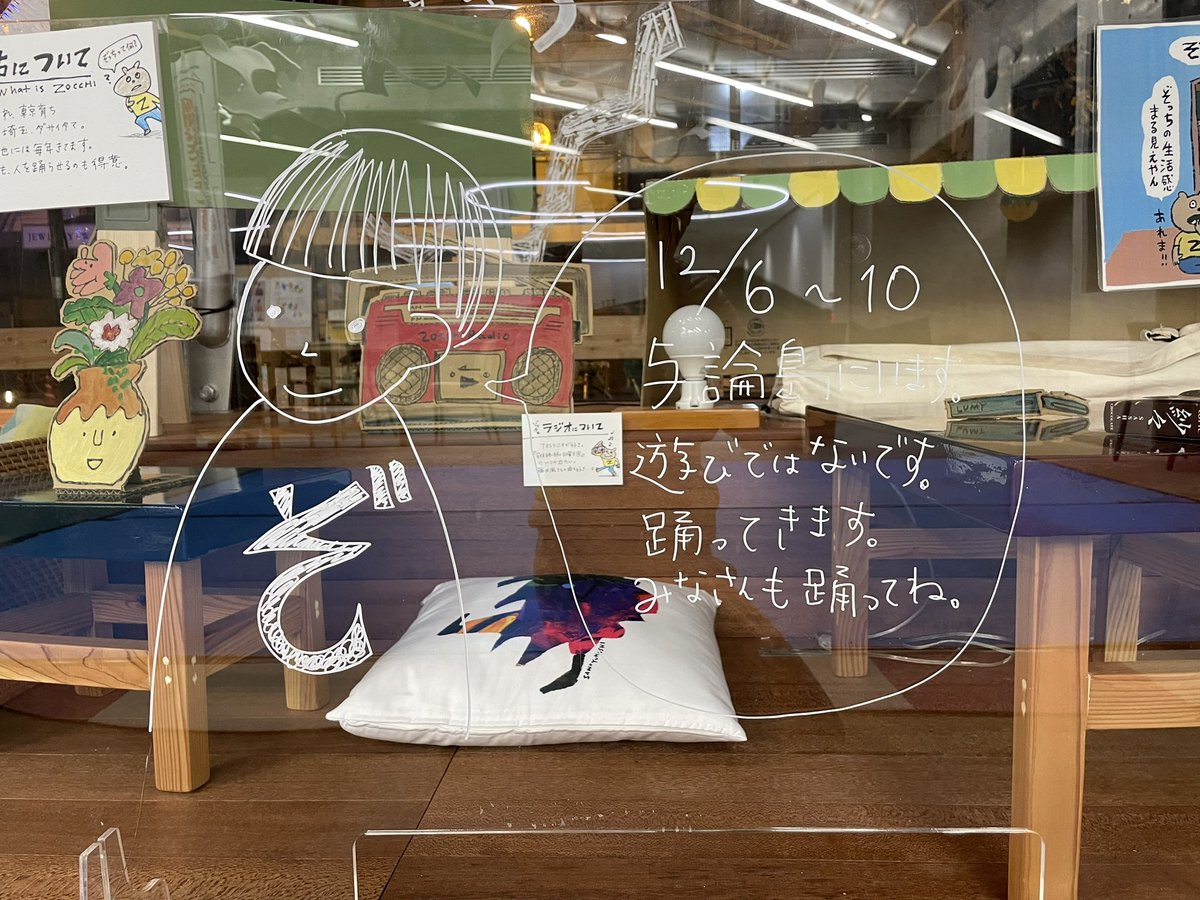 について
What is ZOCCHI
ぞっちって何?
、東京育ち
埼玉、ダサイタマ。
には毎年きてます。
も、人を踊らせるのも得意。
12/6~10
与論島にいます。
遊びではないです。
踊ってきます。
みなさんも踊ってね。
ぞ
ラジオについて
そ
ぞっちの生活感
まる見えやん
あれま!!
LUMY
JEW
SANUYAMISHI